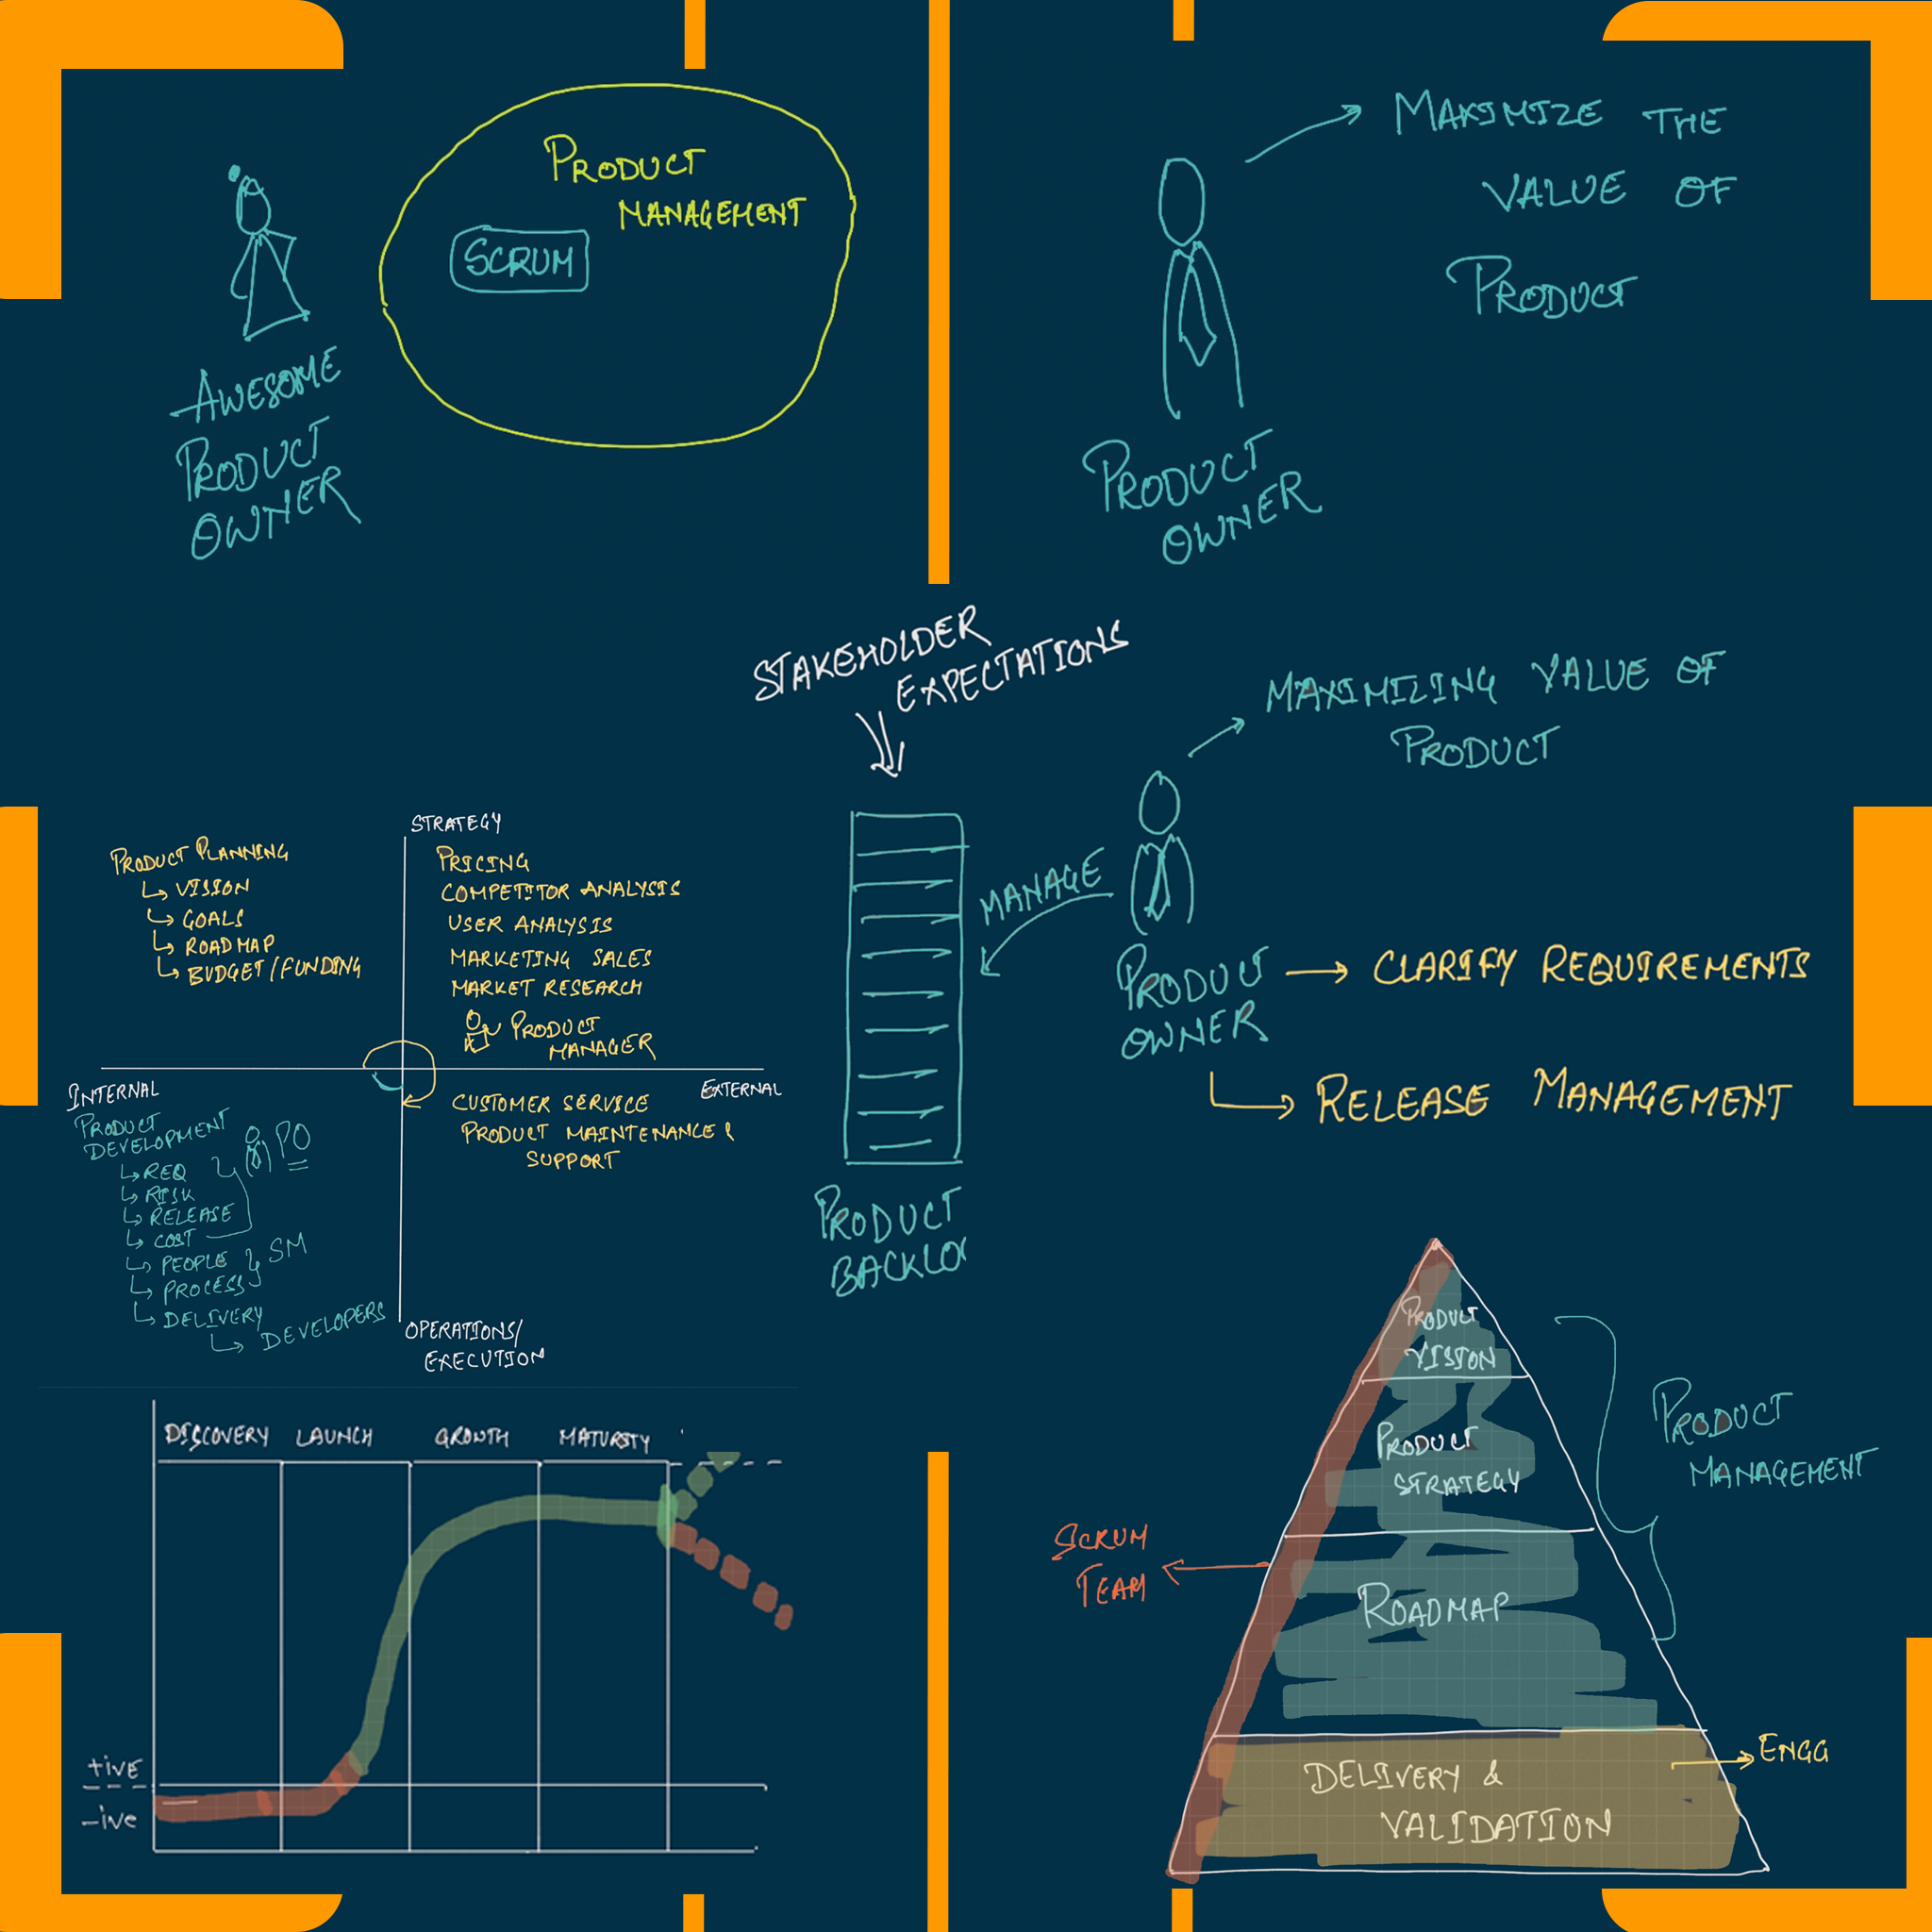 PRODUCT
MANAGEMENT
SCRUM
AWESOME
PRODUCT
OWNER
MAXIMIZE THE
VALUE OF
PRODUCT
PRODUCT
OWNER
STAKEHOLDER
EXPECTATIONS
MAXIMIZING VALUE OF
PRODUCT
MANAGE
PRODUCT
OWNER
CLARIFY REQUIREMENTS
RELEASE MANAGEMENT
PRODUCT
BACKLO
STRATEGY
PRODUCT PLANNING
VISION
GOALS
ROADMAP
BUDGET/FUNDING
PRICING
COMPETITOR ANALYSIS
USER ANALYSIS
MARKETING SALES
MARKET RESEARCH
PRODUCT
MANAGER
INTERNAL
EXTERNAL
PRODUCT
DEVELOPMENT
REQ
RISK
RELEASE
COST
PO
PEOPLE
PROCESS
SM
DELIVERY
DEVELOPERS
CUSTOMER SERVICE
PRODUCT MAINTENANCE &
SUPPORT
OPERATIONS/
EXECUTION
DISCOVERY LAUNCH GROWTH MATURITY
+ive
-ive
PRODUCT
VISION
PRODUCT
STRATEGY
ROADMAP
DELIVERY &
VALIDATION
PRODUCT
MANAGEMENT
SCRUM
TEAM
ENGG